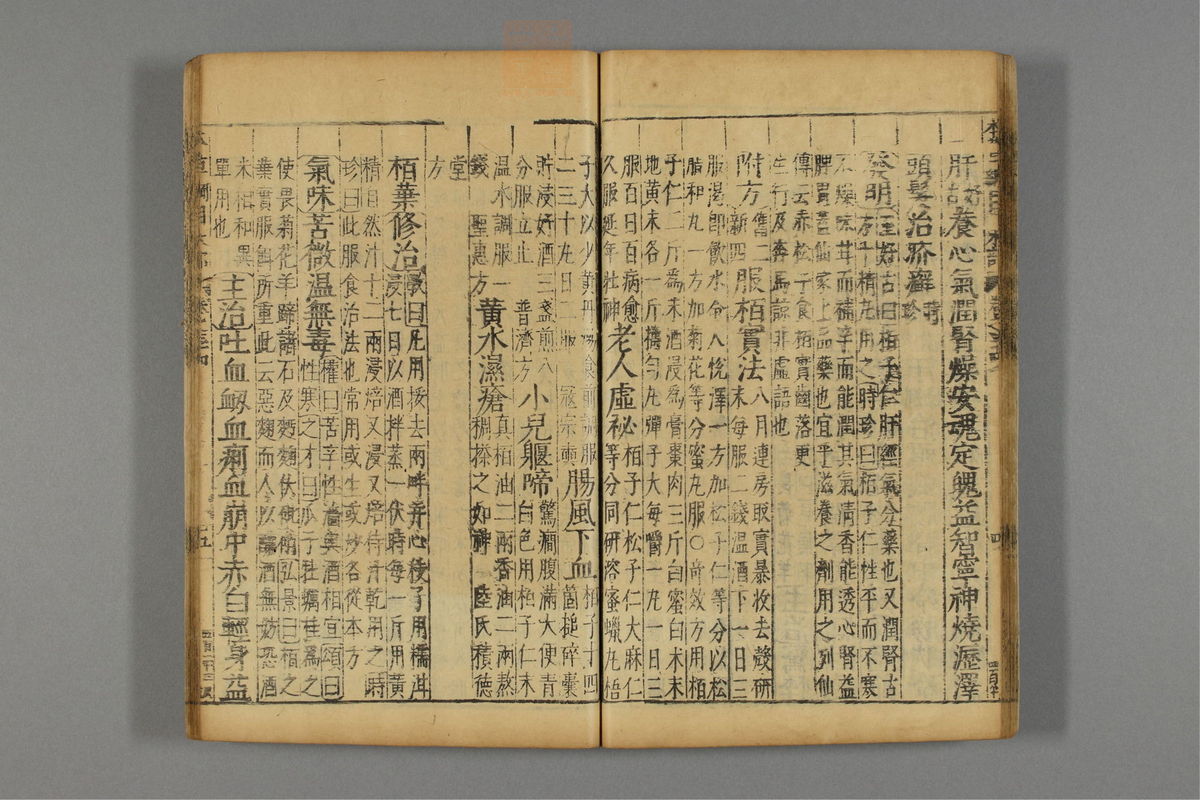 肝藏養心氣潤腎燥安魂定魄益智寧神燒瀝澤
頭髮治疥癬時珍
發明王好古曰柏子仁肝經氣分藥也又潤腎古
方十精丸用之時珍曰柏子仁性平而不寒
不燥味甘而補辛而能潤其氣清香能透心腎益
脾胃蓋仙家上品藥也宜乎滋養之劑用之列仙
傳云赤松子食柏實齒落更
生行及奔馬諒非虛語也
附方舊二新四服柏實法八月連房取實暴收去殼研
末每服二錢温酒下一日三
服渴即飲水令人悅澤一方加松子仁等分以松
脂和丸一方加菊花等分蜜丸服○奇效方用柏
子仁二斤為末酒浸為膏棗肉三斤白蜜白术末
地黄末各一斤擣匀丸彈子大每嚼一丸一日三
服百日百病愈
久服延年壯神老人虛祕柏子仁松子仁大麻仁
等分同研溶蜜蠟丸梧
子大以少黄丹湯食前調服
二三十丸日二服寇宗奭腸風下血柏子十四
箇搥碎囊
貯浸好酒三盞煎八
分服立止普濟方小兒䠠啼驚癇腹滿大便青
白色用柏子仁末
温水調服一
錢聖惠方黄水濕瘡真柏油二兩香油二兩熬
稠搽之如神陸氏積德
堂
方
柏葉修治斆曰凡用挼去兩畔并心枝了用糯泔
浸七日以酒拌蒸一伏時每一斤用黄
精自然汁十二兩浸焙又浸又焙待汁乾用之時
珍曰此服食治法也常用或生或炒各從本方
氣味苦微温無毒權曰苦辛性澀與酒相宜頌曰
性寒之才曰瓜子牡蠣桂為之
使畏菊花羊蹄諸石及麪麴伏砒消弘景曰柏之
葉實服餌所重此云惡麴而人以釀酒無妨恐酒
米相和異
單用也
主治吐血衄血痢血崩中赤白輕身益